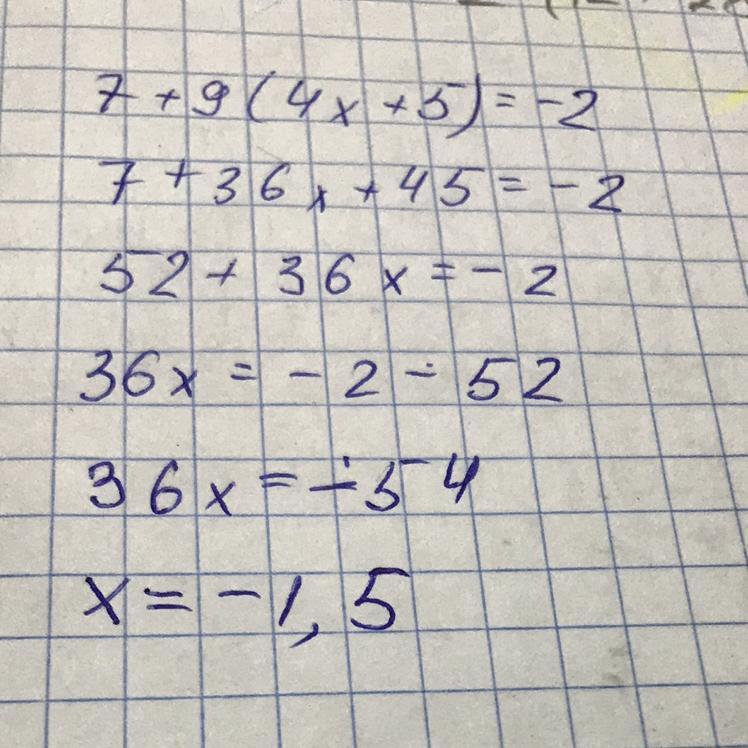 7 + 9 (4x + 5) = -2
7 + 36x + 45 = -2
52 + 36x = -2
36x = -2 - 52
36x = -54
x = -1,5